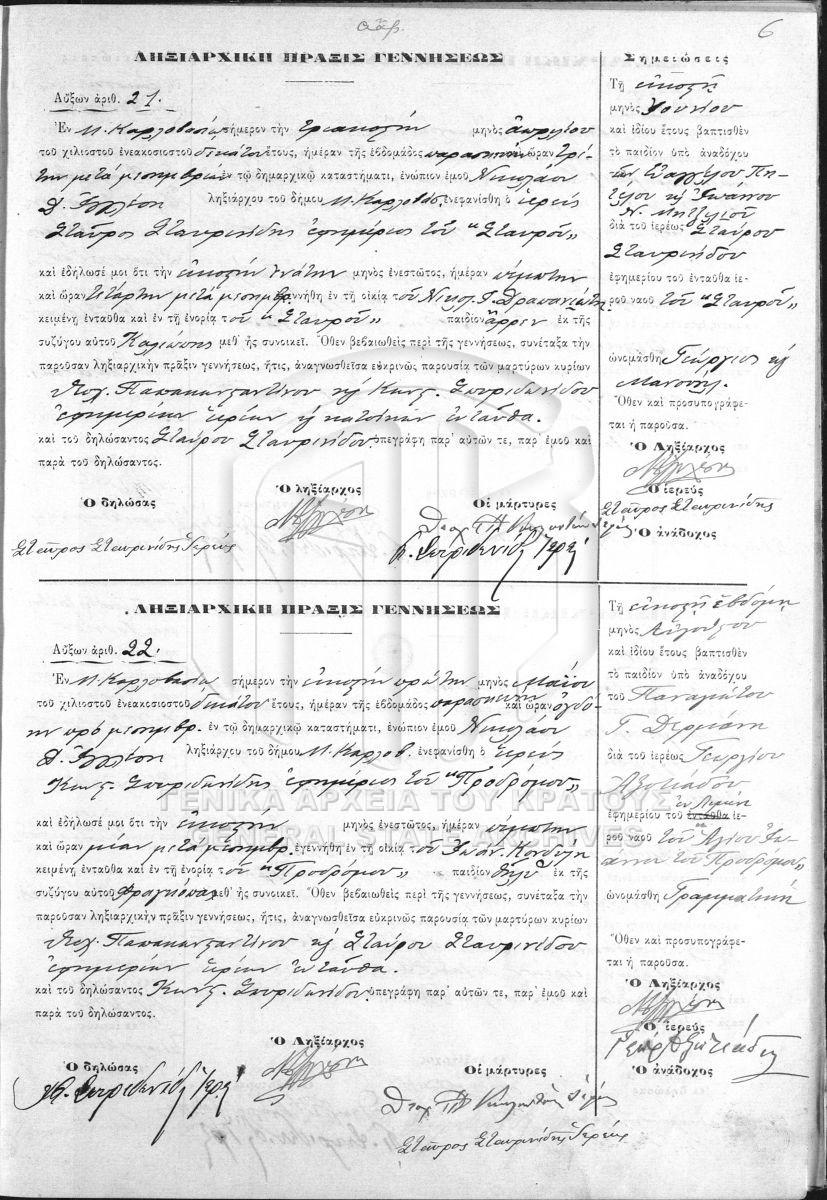 6
ΛΗΞΙΑΡΧΙΚΗ ΠΡΑΞΙΣ ΓΕΝΝΗΣΕΩΣ
Αὔξων ἀριθ. 21.
Ἐν Μ. Καρλοβασίῳ σήμερον τὴν τριακοστὴν μηνὸς Ἀπριλίου
τοῦ χιλιοστοῦ ἐνεακοσιοστοῦ δεκάτου ἔτους, ἡμέραν τῆς ἑβδομάδος παρασκευὴν ὥραν τρί-
την μετὰ μεσημβρίαν ἐν τῷ δημαρχικῷ καταστήματι, ἐνώπιον ἐμοῦ Νικολάου
Δ. ληξιάρχου τοῦ δήμου Μ. Καρλοβασ. ἐνεφανίσθη ὁ ἱερεὺς
Σταῦρος Σταυρινίδης ἐφημέριος τοῦ "Σταυροῦ"
καὶ ἐδήλωσέ μοι ὅτι τὴν εἰκοστὴν ἐνάτην μηνὸς ἐνεστῶτος, ἡμέραν πέμπτην
καὶ ὥραν τετάρτην μετὰ μεσημβρ. ἐγεννήθη ἐν τῇ οἰκίᾳ τοῦ Νικολ. Γ. Δραπανιώτη
κειμένῃ ἐνταῦθα καὶ ἐν τῇ ἐνορίᾳ τοῦ "Σταυροῦ" παιδίον ἄρρεν ἐκ τῆς
συζύγου αὐτοῦ Καλλιόπης μεθ' ἧς συνοικεῖ. Ὅθεν βεβαιωθεὶς περὶ τῆς γεννήσεως, συνέταξα τὴν
παροῦσαν ληξιαρχικὴν πρᾶξιν γεννήσεως, ἥτις, ἀναγνωσθεῖσα εὐκρινῶς παρουσίᾳ τῶν μαρτύρων κυρίων
Θεοχ. Παπακωνσταντίνου καὶ Κωνσ. Σπυριδωνίδου
ἐφημερίων ἱερέων καὶ κατοίκων ἐνταῦθα.
καὶ τοῦ δηλώσαντος Σταύρου Σταυρινίδου ὑπεγράφη παρ' αὐτῶν τε, παρ' ἐμοῦ καὶ
παρὰ τοῦ δηλώσαντος.
Ὁ δηλώσας Ὁ ληξίαρχος Οἱ μάρτυρες
Σταῦρος Σταυρινίδης Ἱερεύς
Κ. Σπυριδωνίδης Ἱερεύς
Σημειώσεις
Τῇ εἰκοστῇ
μηνὸς Ἰουνίου
καὶ ἰδίου ἔτους βαπτισθὲν
τὸ παιδίον ὑπὸ ἀναδόχου
τῶν Εὐαγγέλου
καὶ Ἰωάννου
διὰ τοῦ ἱερέως Σταύρου
Σταυρινίδου
ἐφημερίου τοῦ ἐνταῦθα ἱε-
ροῦ ναοῦ τοῦ "Σταυροῦ"
ὠνομάσθη Γεώργιος καὶ
Μανουήλ.
Ὅθεν καὶ προσυπογράφε-
ται ἡ παροῦσα.
Ὁ Ληξίαρχος
Ὁ ἱερεὺς
Σταῦρος Σταυρινίδης
Ὁ ἀνάδοχος
ΛΗΞΙΑΡΧΙΚΗ ΠΡΑΞΙΣ ΓΕΝΝΗΣΕΩΣ
Αὔξων ἀριθ. 22.
Ἐν Μ. Καρλοβασίῳ σήμερον τὴν εἰκοστὴν πρώτην μηνὸς Μαΐου
τοῦ χιλιοστοῦ ἐνεακοσιοστοῦ δεκάτου ἔτους, ἡμέραν τῆς ἑβδομάδος παρασκευὴν καὶ ὥραν ὀγδό-
ην πρὸ μεσημβρ. ἐν τῷ δημαρχικῷ καταστήματι, ἐνώπιον ἐμοῦ Νικολάου
Δ. ληξιάρχου τοῦ δήμου Μ. Καρλοβ. ἐνεφανίσθη ὁ ἱερεὺς
Κωνσ. Σπυριδωνίδης ἐφημέριος τοῦ "Προδρόμου"
καὶ ἐδήλωσέ μοι ὅτι τὴν εἰκοστὴν μηνὸς ἐνεστῶτος, ἡμέραν πέμπτην
καὶ ὥραν μίαν μετὰ μεσημβρ. ἐγεννήθη ἐν τῇ οἰκίᾳ τοῦ Ἰωάν. Κονδύλη
κειμένῃ ἐνταῦθα καὶ ἐν τῇ ἐνορίᾳ τοῦ "Προδρόμου" παιδίον θῆλυ ἐκ τῆς
συζύγου αὐτοῦ μεθ' ἧς συνοικεῖ. Ὅθεν βεβαιωθεὶς περὶ τῆς γεννήσεως, συνέταξα τὴν
παροῦσαν ληξιαρχικὴν πρᾶξιν γεννήσεως, ἥτις, ἀναγνωσθεῖσα εὐκρινῶς παρουσίᾳ τῶν μαρτύρων κυρίων
Θεοχ. Παπακωνσταντίνου καὶ Σταύρου Σταυρινίδου
ἐφημερίων ἱερέων ἐνταῦθα.
καὶ τοῦ δηλώσαντος Κωνσ. Σπυριδωνίδου ὑπεγράφη παρ' αὐτῶν τε, παρ' ἐμοῦ καὶ
παρὰ τοῦ δηλώσαντος.
Ὁ δηλώσας Ὁ Ληξίαρχος Οἱ μάρτυρες
Κ. Σπυριδωνίδης Ἱερεύς
Σταῦρος Σταυρινίδης Ἱερεύς
Τῇ εἰκοστῇ ἑβδόμῃ
μηνὸς Αὐγούστου
καὶ ἰδίου ἔτους βαπτισθὲν
τὸ παιδίον ὑπὸ ἀναδόχου
τοῦ Παναγιώτου
Γ.
διὰ τοῦ ἱερέως Γεωργίου
Ἀξωτιάδου
ἐν Λιμένι
ἐφημερίου τοῦ ἐνταῦθα ἱε-
ροῦ ναοῦ τοῦ "Ἁγίου Ἰω-
άννου τοῦ Προδρόμου"
ὠνομάσθη Γραμματικὴ
Ὅθεν καὶ προσυπογράφε-
ται ἡ παροῦσα.
Ὁ Ληξίαρχος
Ὁ ἱερεὺς
Ὁ ἀνάδοχος
ΓΕΝΙΚΑ ΑΡΧΕΙΑ ΤΟΥ ΚΡΑΤΟΥΣ
GENERAL STATE ARCHIVES